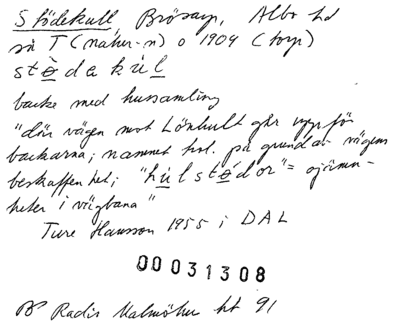 Stödekull Brösarp, Albo hd
så T (näher-n) o 1904 (torp)
stø̀dakúl
backe med hussamling
"där vägen mot Lönhult går upp för
backarna; namnet trol. på grund av vägens
beskaffenhet; "húlstø̀dor" = ojämn-
heter i vägbana"
Ture Hansson 1955 i DAL
00031308
Radis Malmöhus ht 91